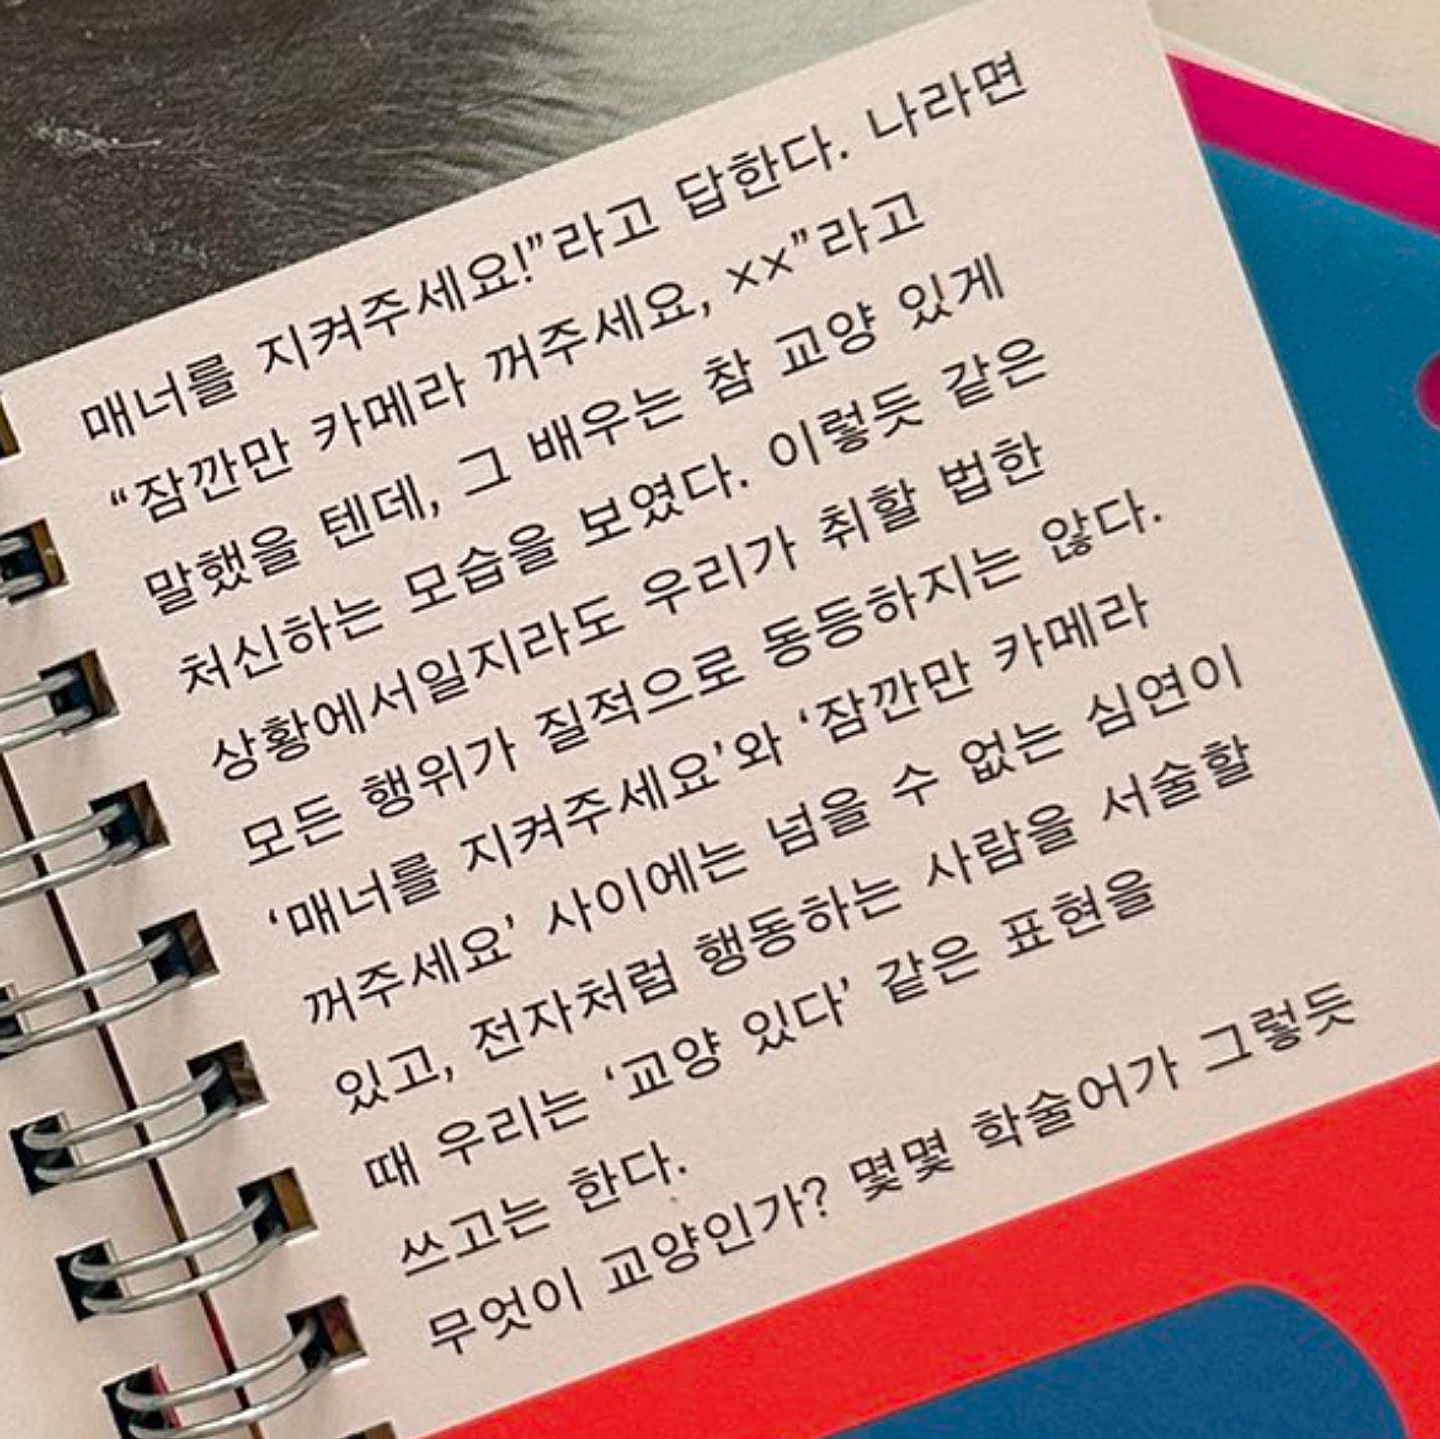 매너를 지켜주세요!”라고 답한다. 나라면
“잠깐만 카메라 꺼주세요, ××”라고
말했을 텐데, 그 배우는 참 교양 있게
처신하는 모습을 보였다. 이렇듯 같은
상황에서일지라도 우리가 취할 법한
모든 행위가 질적으로 동등하지는 않다.
‘매너를 지켜주세요’와 ‘잠깐만 카메라
꺼주세요’ 사이에는 넘을 수 없는 심연이
있고, 전자처럼 행동하는 사람을 서술할
때 우리는 ‘교양 있다’ 같은 표현을
쓰고는 한다.
무엇이 교양인가? 몇몇 학술어가 그렇듯